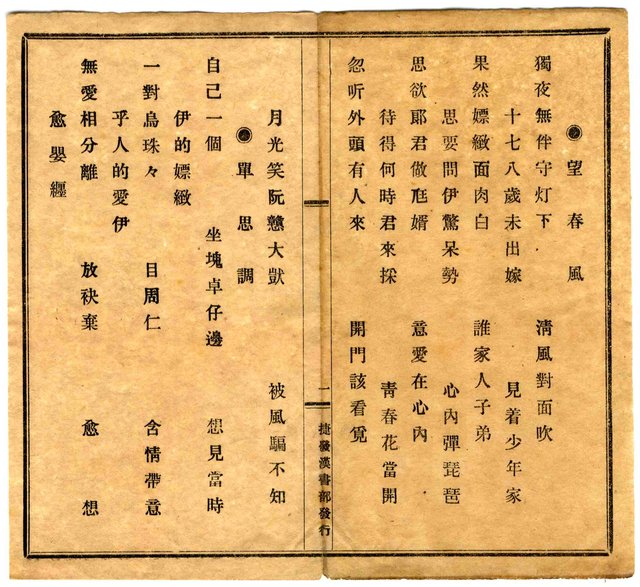 望春風
獨夜無伴守灯下 清風對面吹
十七八歲未出嫁 見着少年家
果然嫖緻面肉白 誰家人子弟
思要問伊驚呆勢 心內彈琵琶
思欲郎君做尪婿 意愛在心內
待得何時君來採 青春花當開
忽听外頭有人來 開門該看覓
一 捷發漢書部發行
月光笑阮戇大獃 被風騙不知
單思調
自己一個 坐塊卓仔邊 想見當時
伊的嫖緻
一對烏珠々 目周仁 含情帶意
乎人的愛伊
無愛相分離 放袂棄 愈想
愈嬰纏